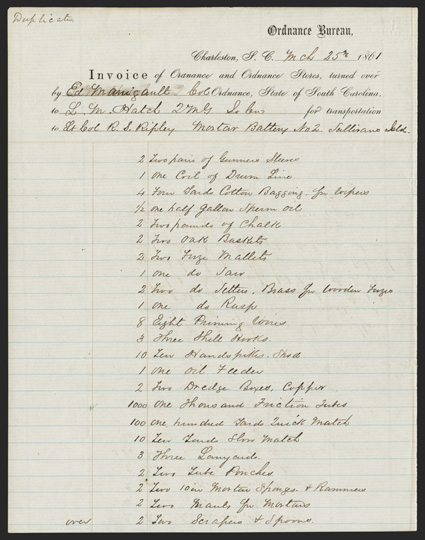 Duplicate
Ordnance Bureau,
Charleston, S. C. Mch 25th 1861
Invoice of Ordnance and Ordnance Stores, turned over
by Ed Manigault Col Ordnance, State of South Carolina,
to L. M. Hatch 2 M G So. Ca for transportation
to Lt Col R. S. Ripley Mortar Battery No 2 Sullivans Isld.
2 Two pairs of Gunners Sleeves
1 One Coil of Drum Line
4 Four Yards Cotton Bagging for wipers
1/2 One half Gallon Sperm Oil
2 Two pounds of Chalk
2 Two Oak Baskets
2 Two Fuze Mallets
1 One do Saw
2 Two do Setters, Brass for wooden Fuzes
1 One do Rasp
8 Eight Priming Wires
3 Three Shell Hooks
10 Ten Handspikes. Shod
1 One Oil Feeder
2 Two Dredge Boxes, Copper
1000 One Thousand Friction Tubes
100 One hundred Yards Quick Match
10 Ten Yards Slow Match
3 Three Lanyards
2 Two Tube Pouches
2 Two 10 in Mortar Sponges & Rammers
2 Two Mauls for Mortars
over 2 Two Scrapers & Spoons